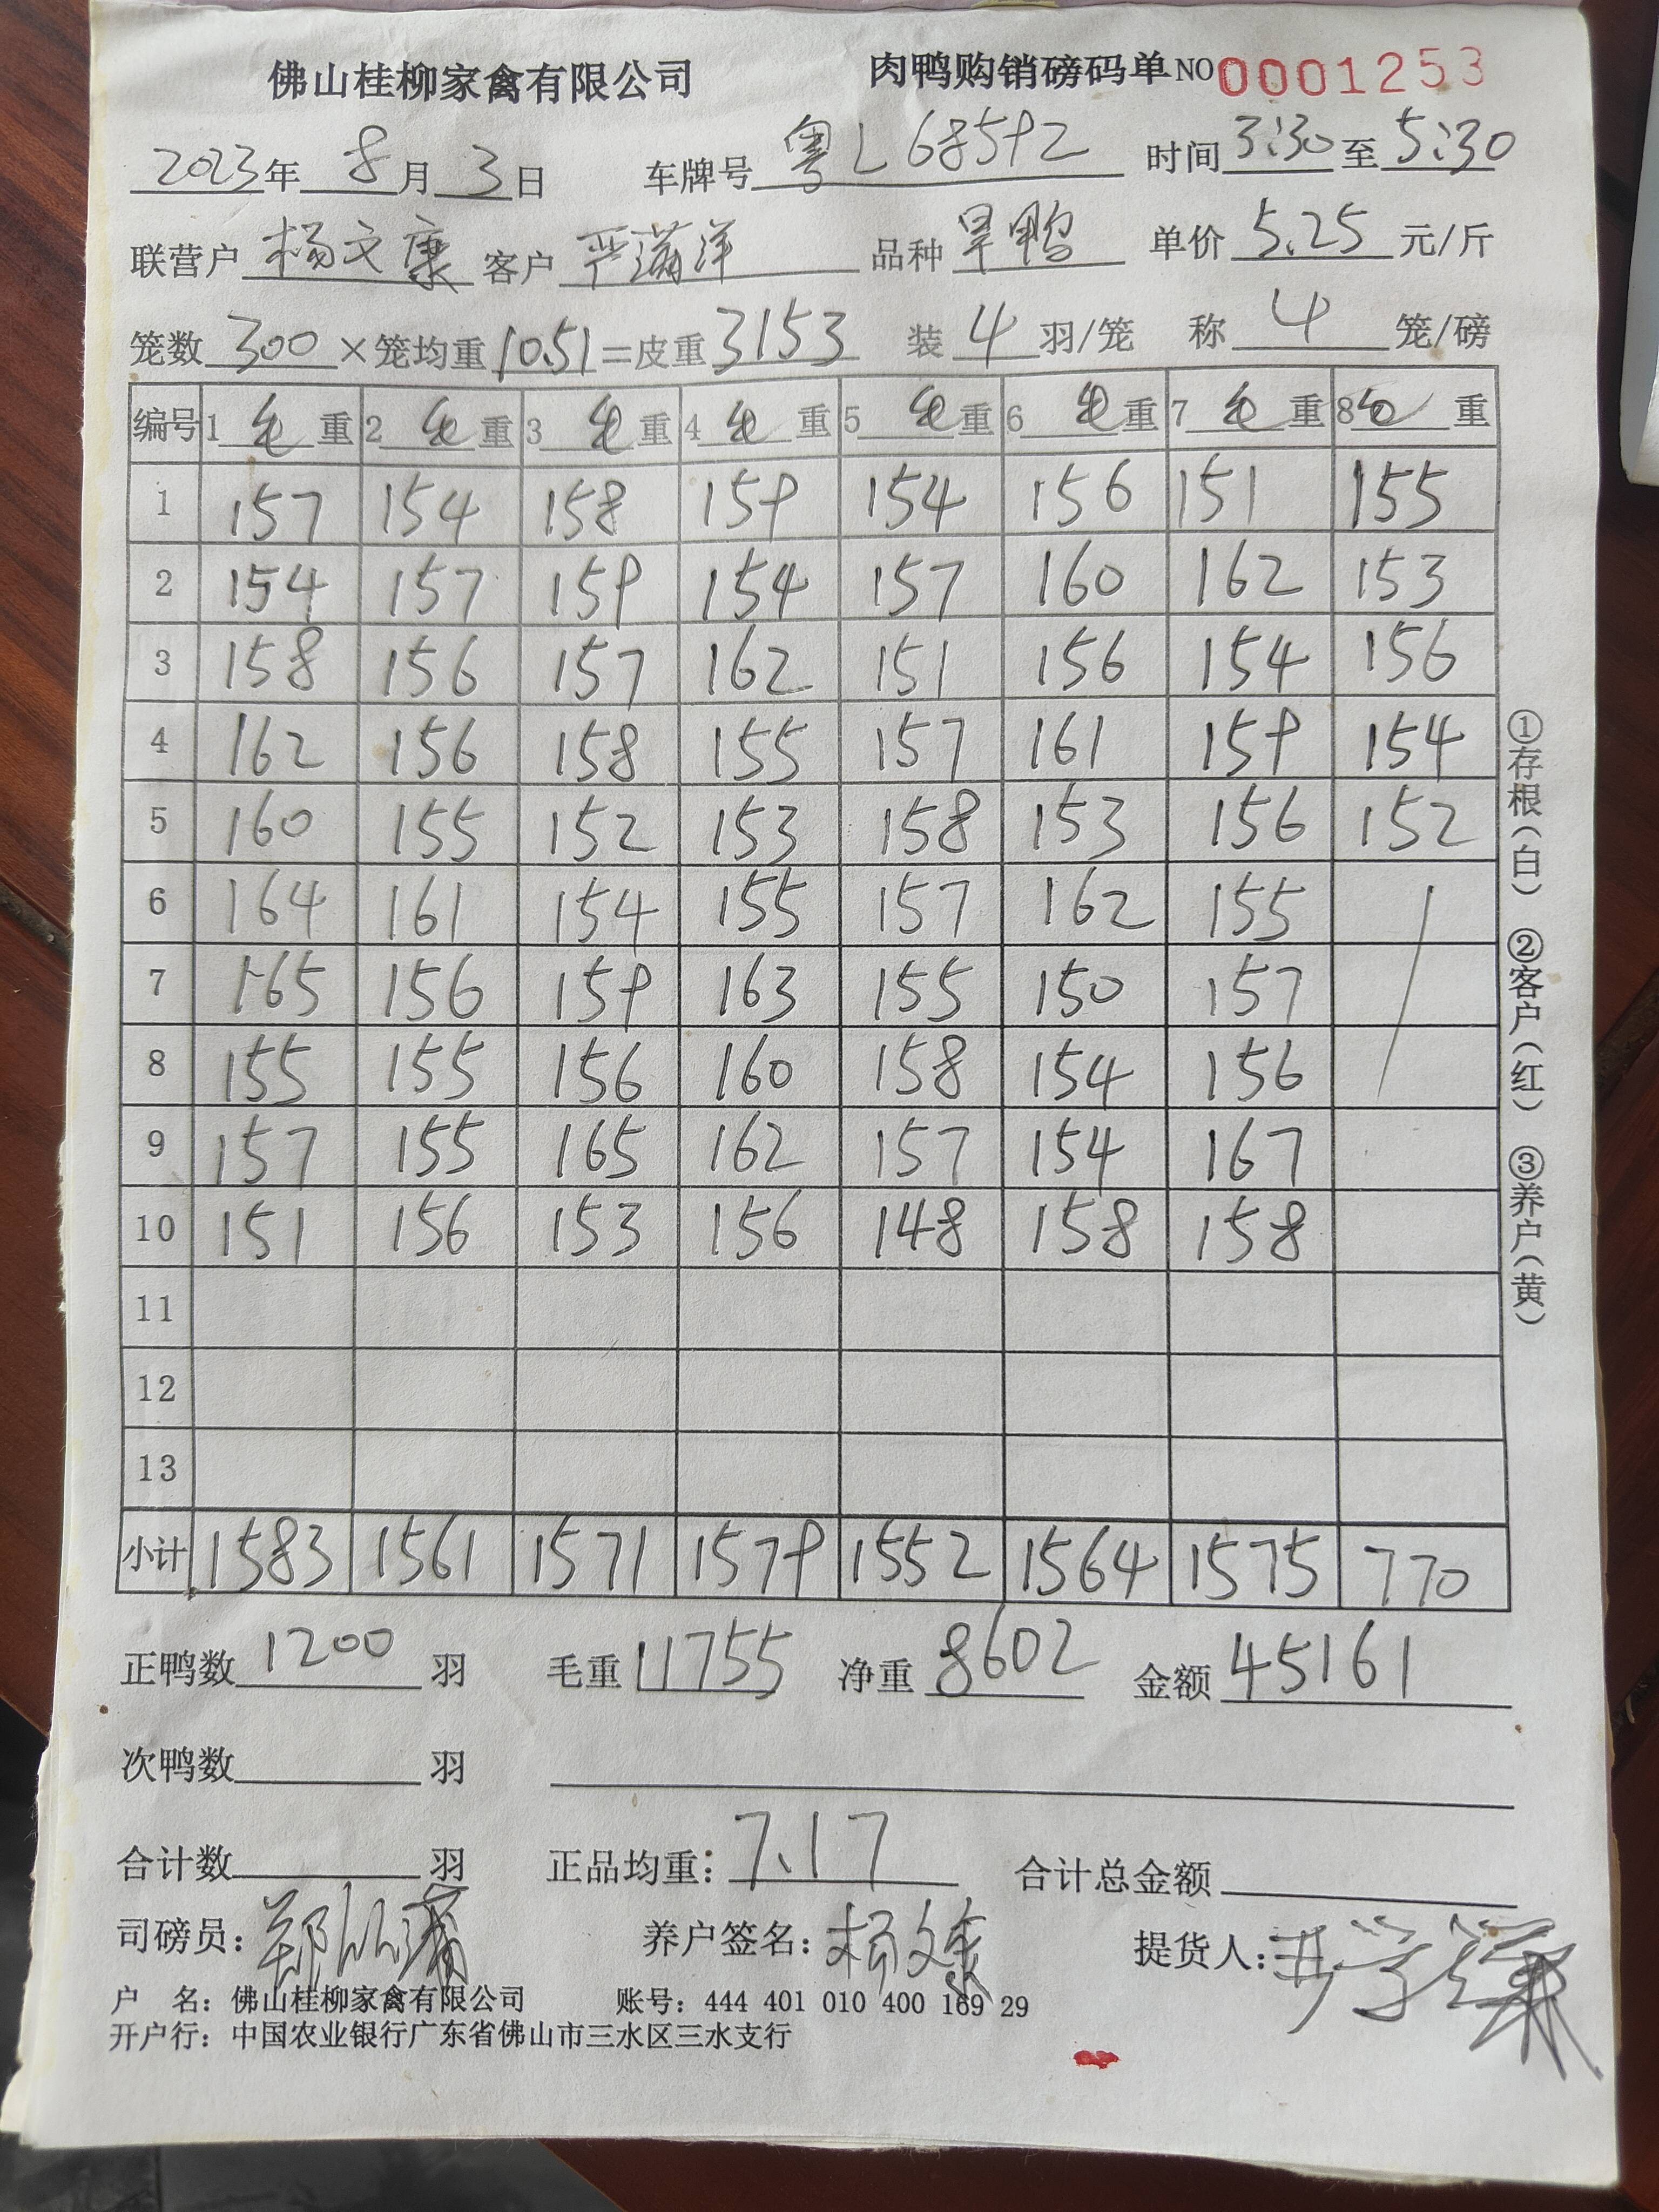 佛山桂柳家禽有限公司 肉鸭购销磅码单 NO 0001253
2023年 8月 3日 车牌号 粤L68592 时间 3:30 至 5:30
联营户 杨文康 客户 严满洋 品种 旱鸭 单价 5.25 元/斤
笼数 300 ×笼均重 10.51 =皮重 3153 装 4 羽/笼 称 4 笼/磅
编号 1 毛重 2 毛重 3 毛重 4 毛重 5 毛重 6 毛重 7 毛重 8 毛重
1 157 154 158 159 154 156 151 155
2 154 157 159 154 157 160 162 153
3 158 156 157 162 151 156 154 156
4 162 156 158 155 157 161 159 154
5 160 155 152 153 158 153 156 152
6 164 161 154 155 157 162 155
7 165 156 159 163 155 150 157
8 155 155 156 160 158 154 156
9 157 155 165 162 157 154 167
10 151 156 153 156 148 158 158
11
12
13
小计 1583 1561 1571 1579 1552 1564 1575 770
正鸭数 1200 羽 毛重 11755 净重 8602 金额 45161
次鸭数 羽
合计数 羽 正品均重: 7.17 合计总金额
司磅员: 养户签名: 杨文康 提货人:
户 名: 佛山桂柳家禽有限公司 账号: 444 401 010 400 169 29
开户行: 中国农业银行广东省佛山市三水区三水支行
①存根(白) ②客户(红) ③养户(黄)